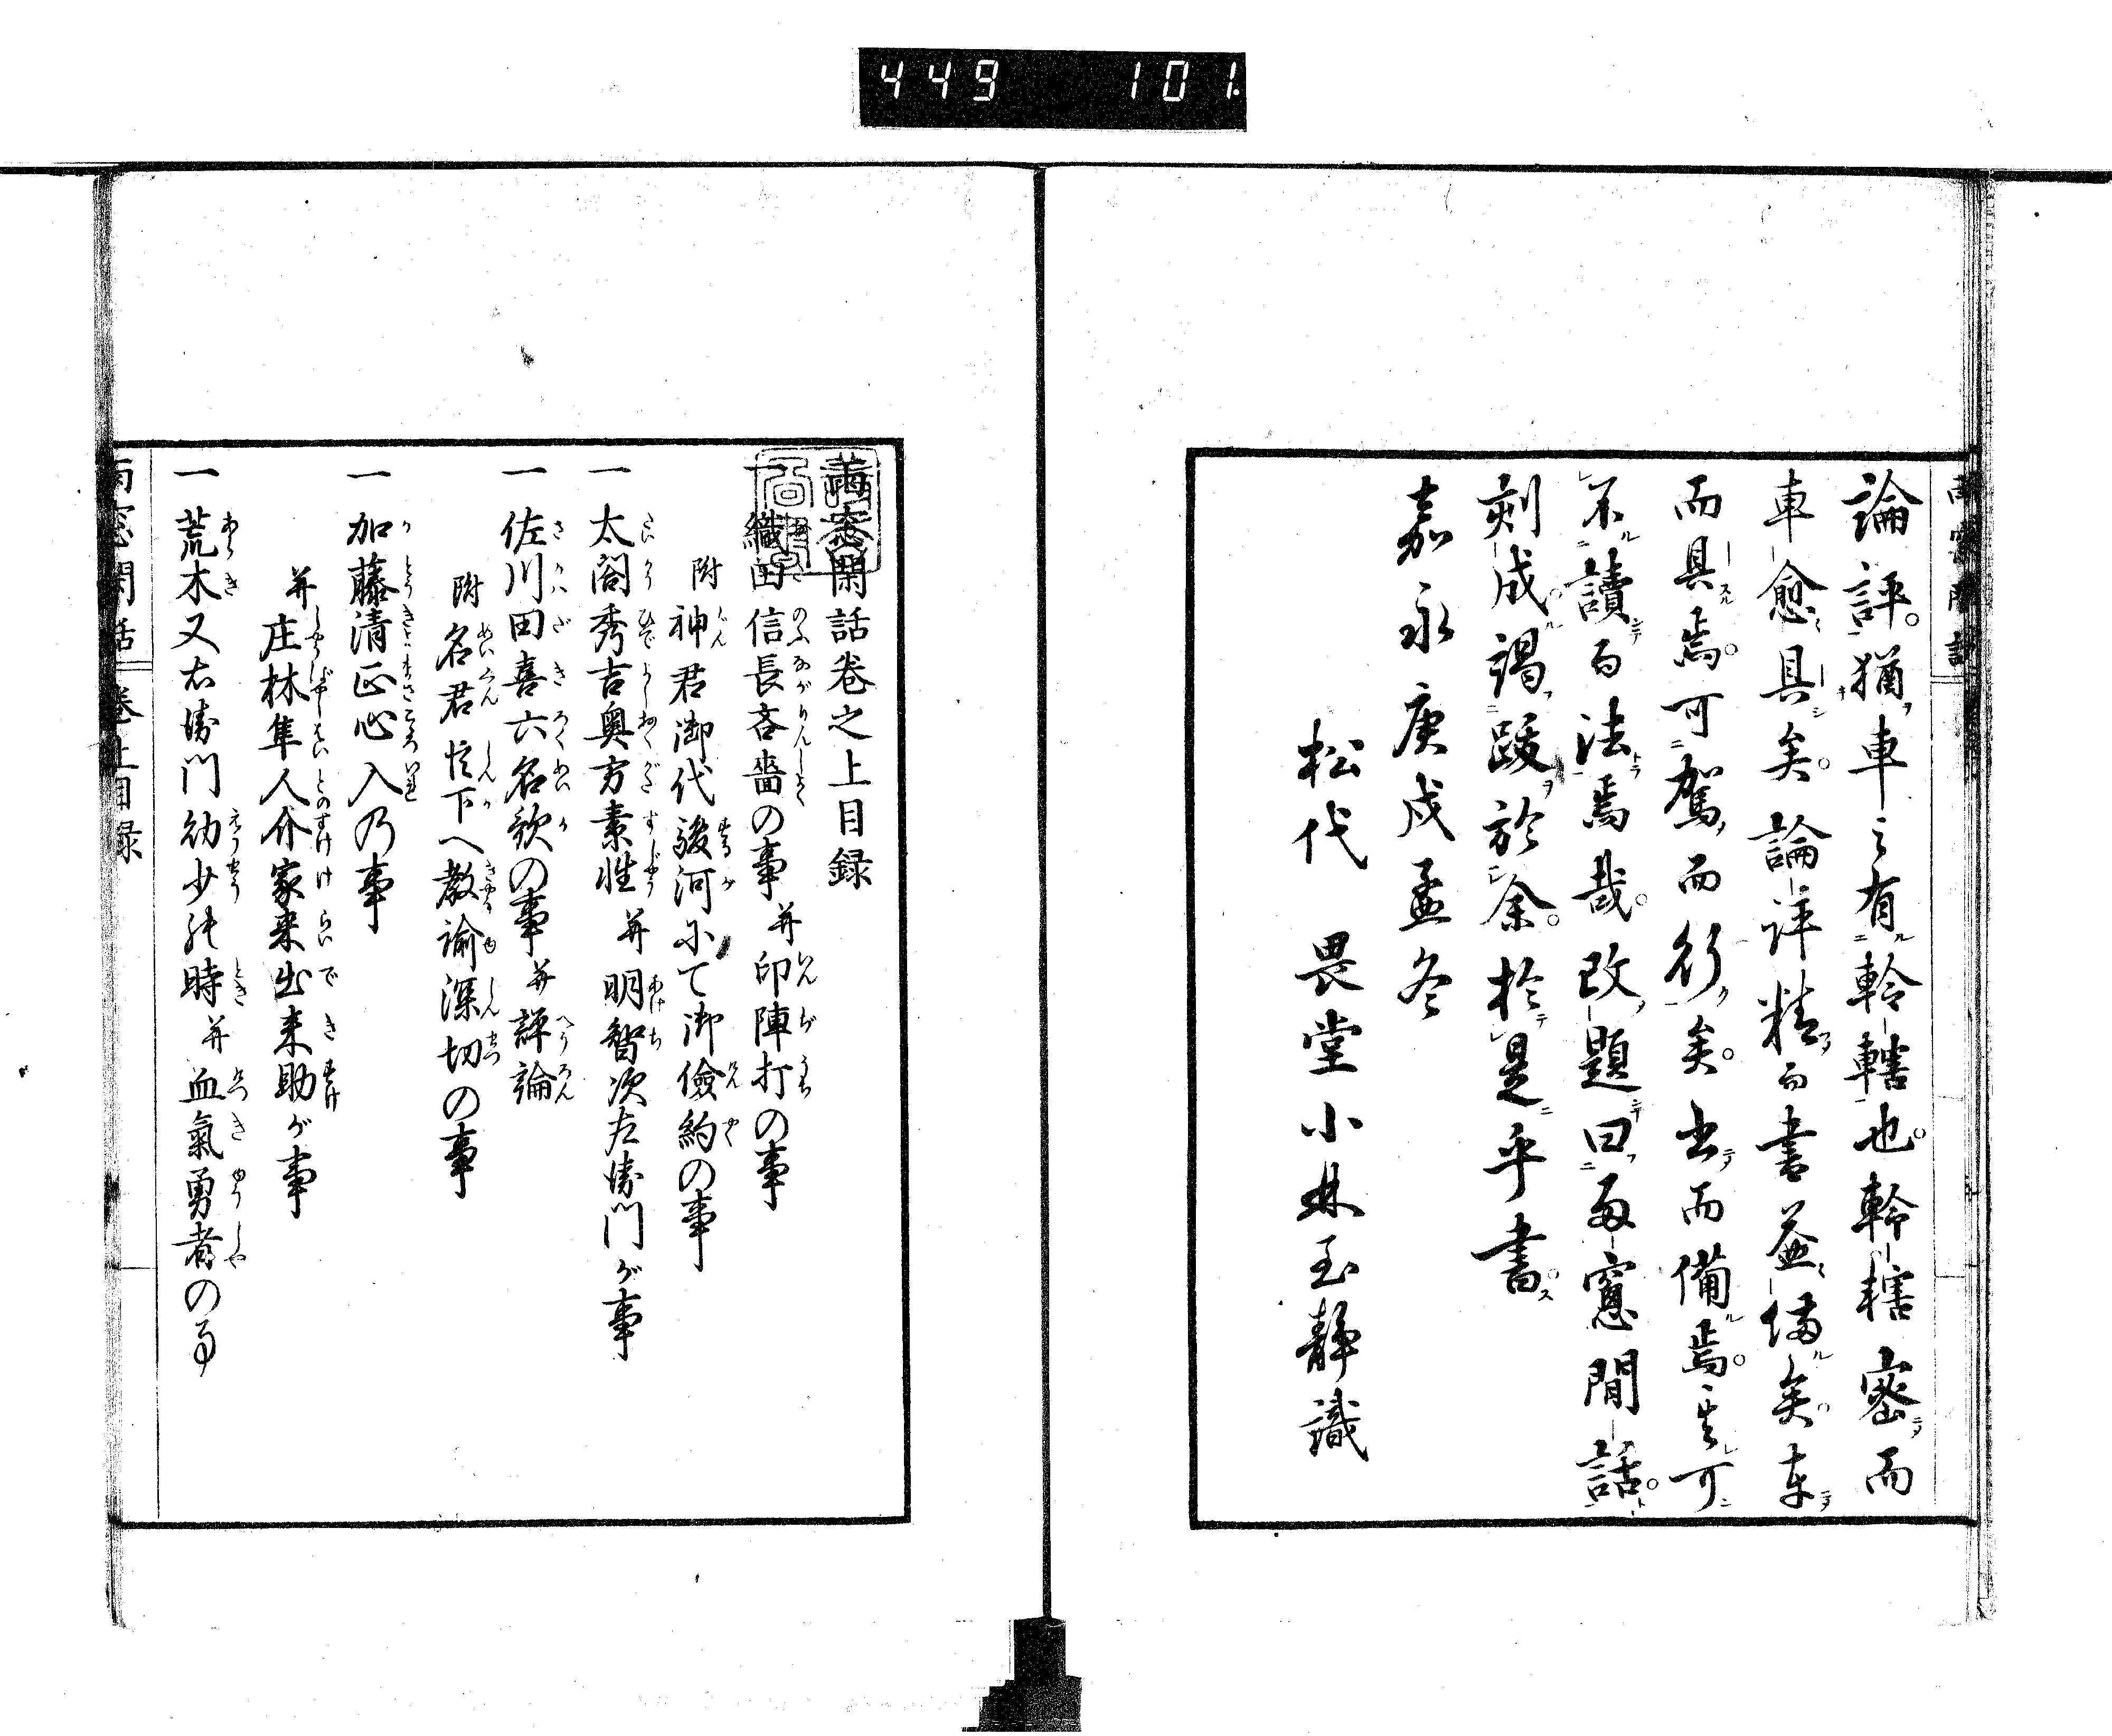 449 101
論評。猶車之有軨轄也。軨轄密而
車愈具矣。論評精而書益備矣。車
而具焉。可駕而行矣。書而備焉。其可
不讀而法焉哉。改題曰雨窓閒話。
刻成謁跋於余。於是乎書
嘉永庚戌孟冬
松代 畏堂小林至靜識
雨窓閑話巻之上目録
一 織田信長吝嗇の事并印陣打の事
附 神君御代駿河にて御儉約の事
一 太閤秀吉奥方素性并明智次左衛門が事
一 佐川田喜六名歌の事并評論
附 名君臣下へ教諭深切の事
一 加藤清正心入乃事
并 庄林隼人介家来出来助が事
一 荒木又右衛門幼少の時并血氣勇者の事
雨窓閑話 巻上目録